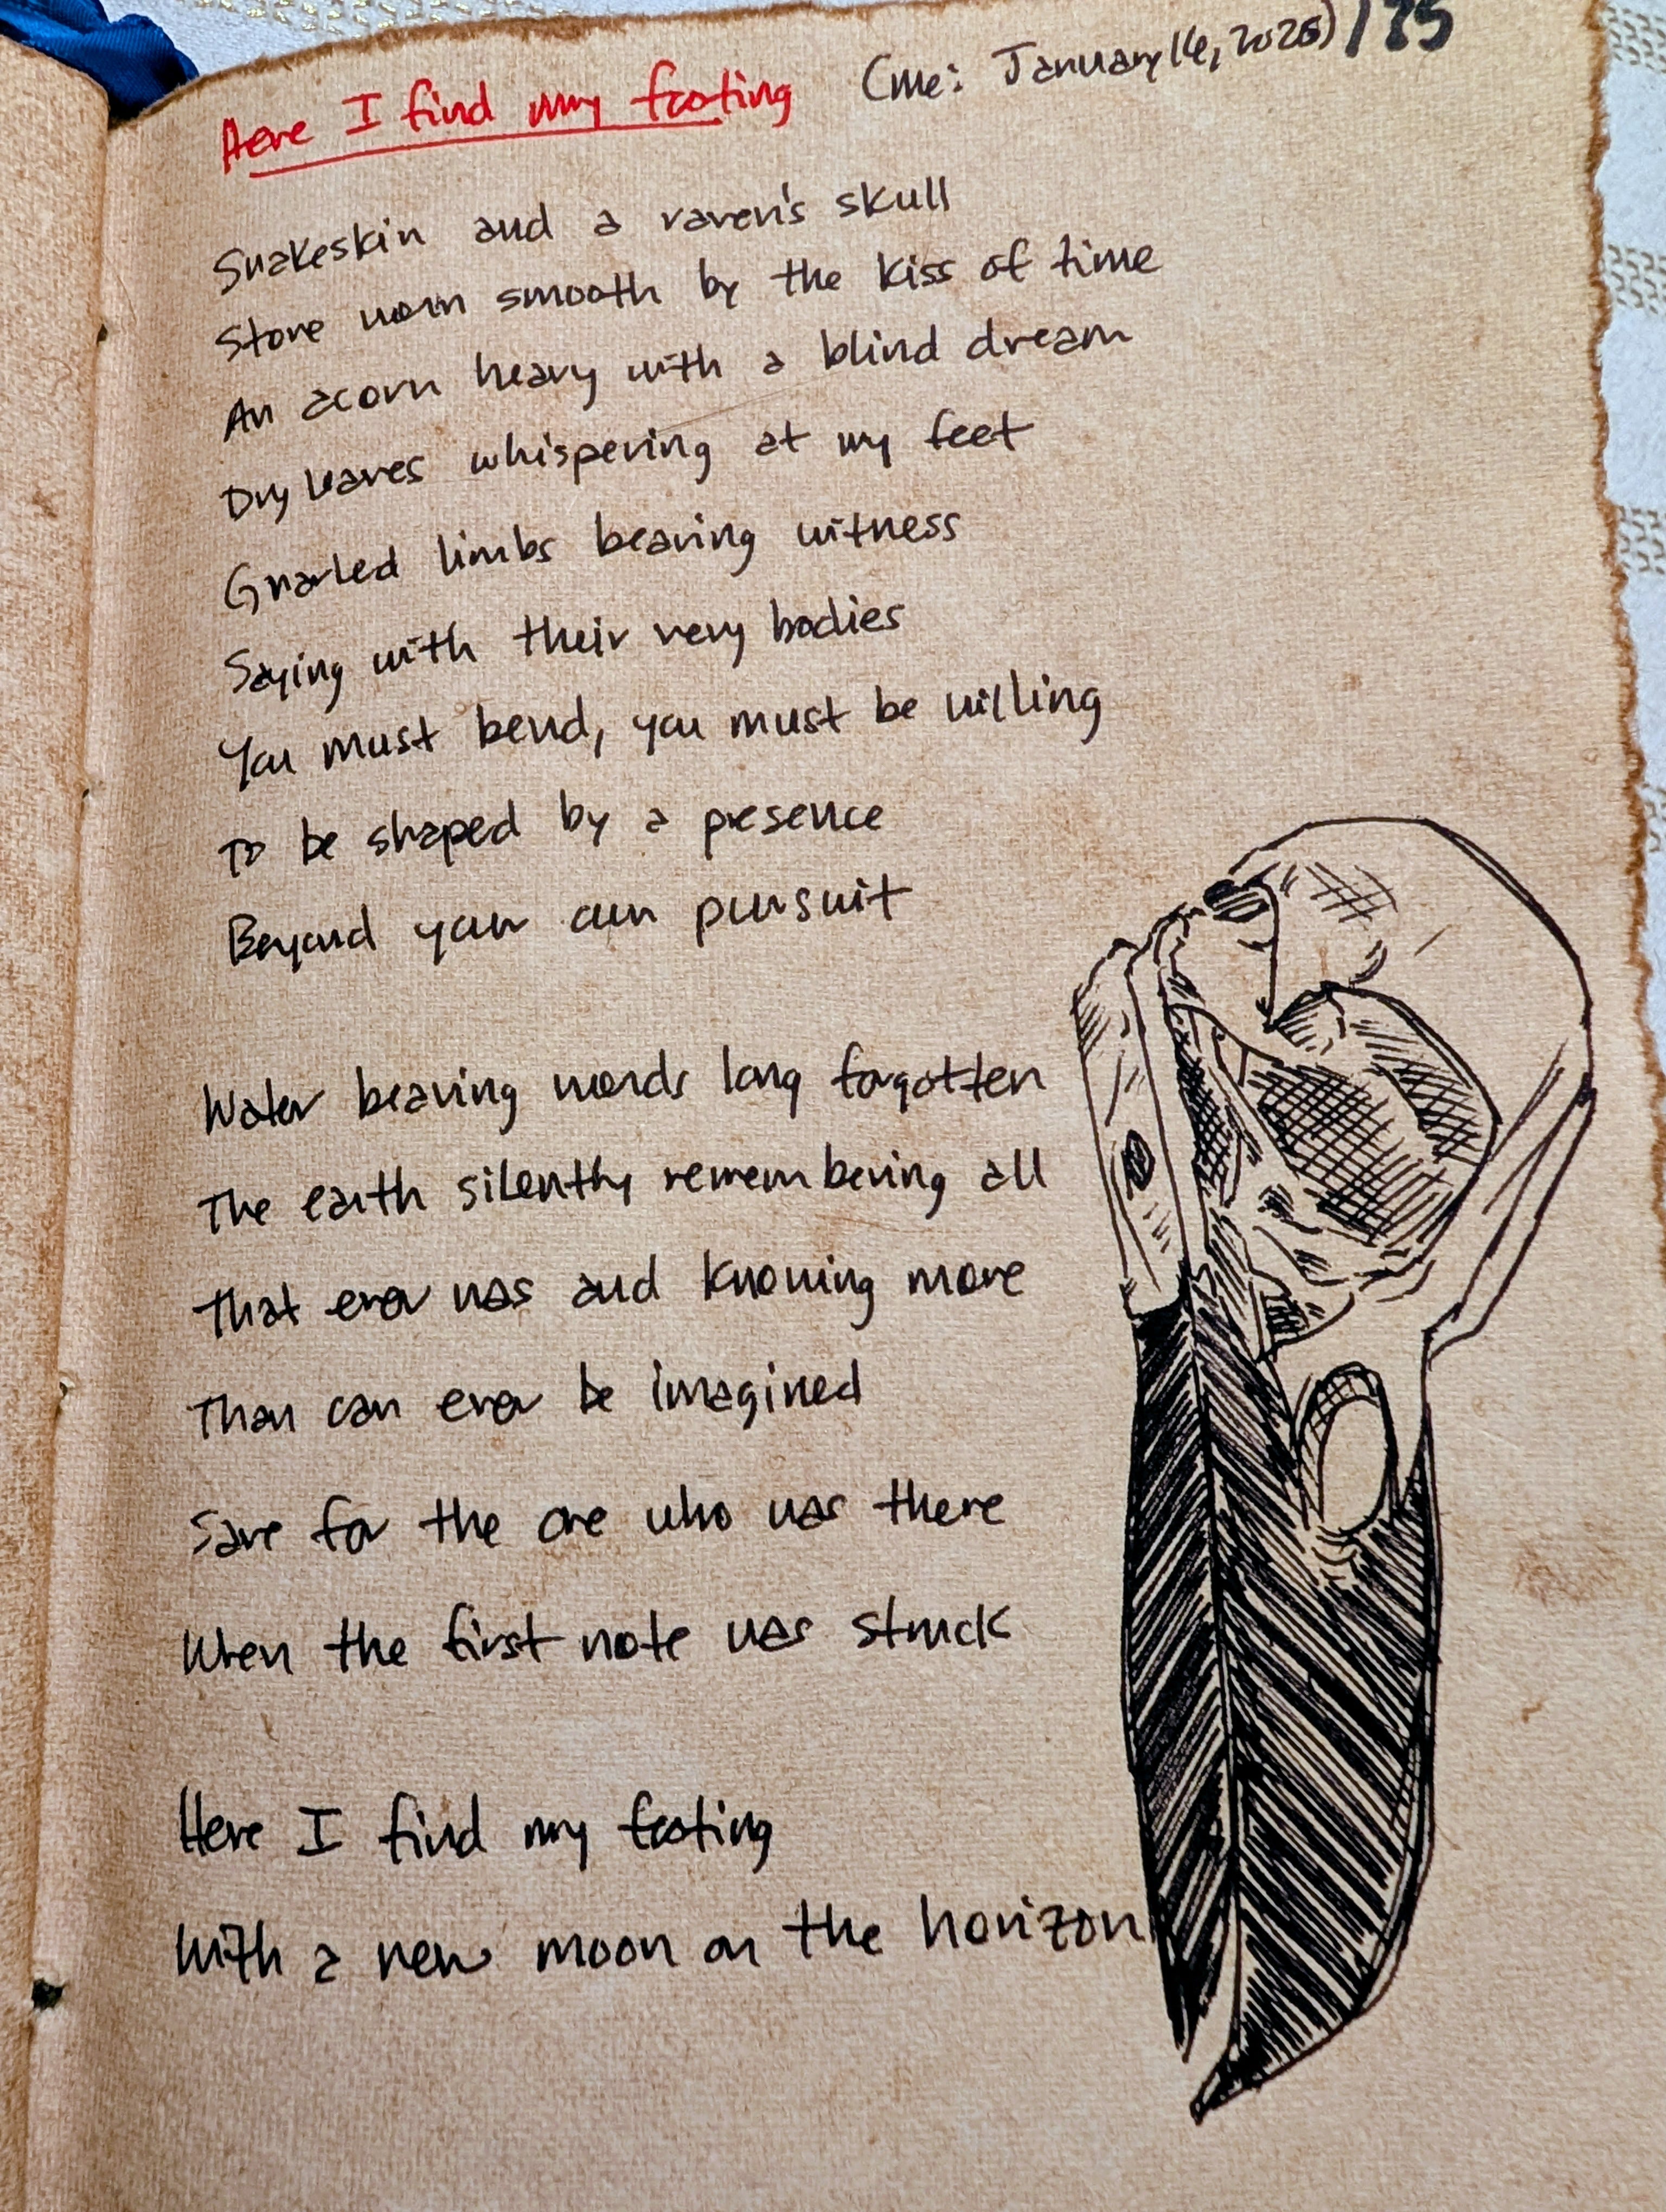 Here I find my footing (me: January 16, 2026) / 75
Snakeskin and a raven's skull
Stone worn smooth by the kiss of time
An acorn heavy with a blind dream
Dry leaves whispering at my feet
Gnarled limbs bearing witness
Saying with their very bodies
You must bend, you must be willing
To be shaped by a presence
Beyond your own pursuit
Water bearing words long forgotten
The earth silently remembering all
That ever was and knowing more
Than can ever be imagined
Save for the one who was there
When the first note was struck
Here I find my footing
With a new moon on the horizon